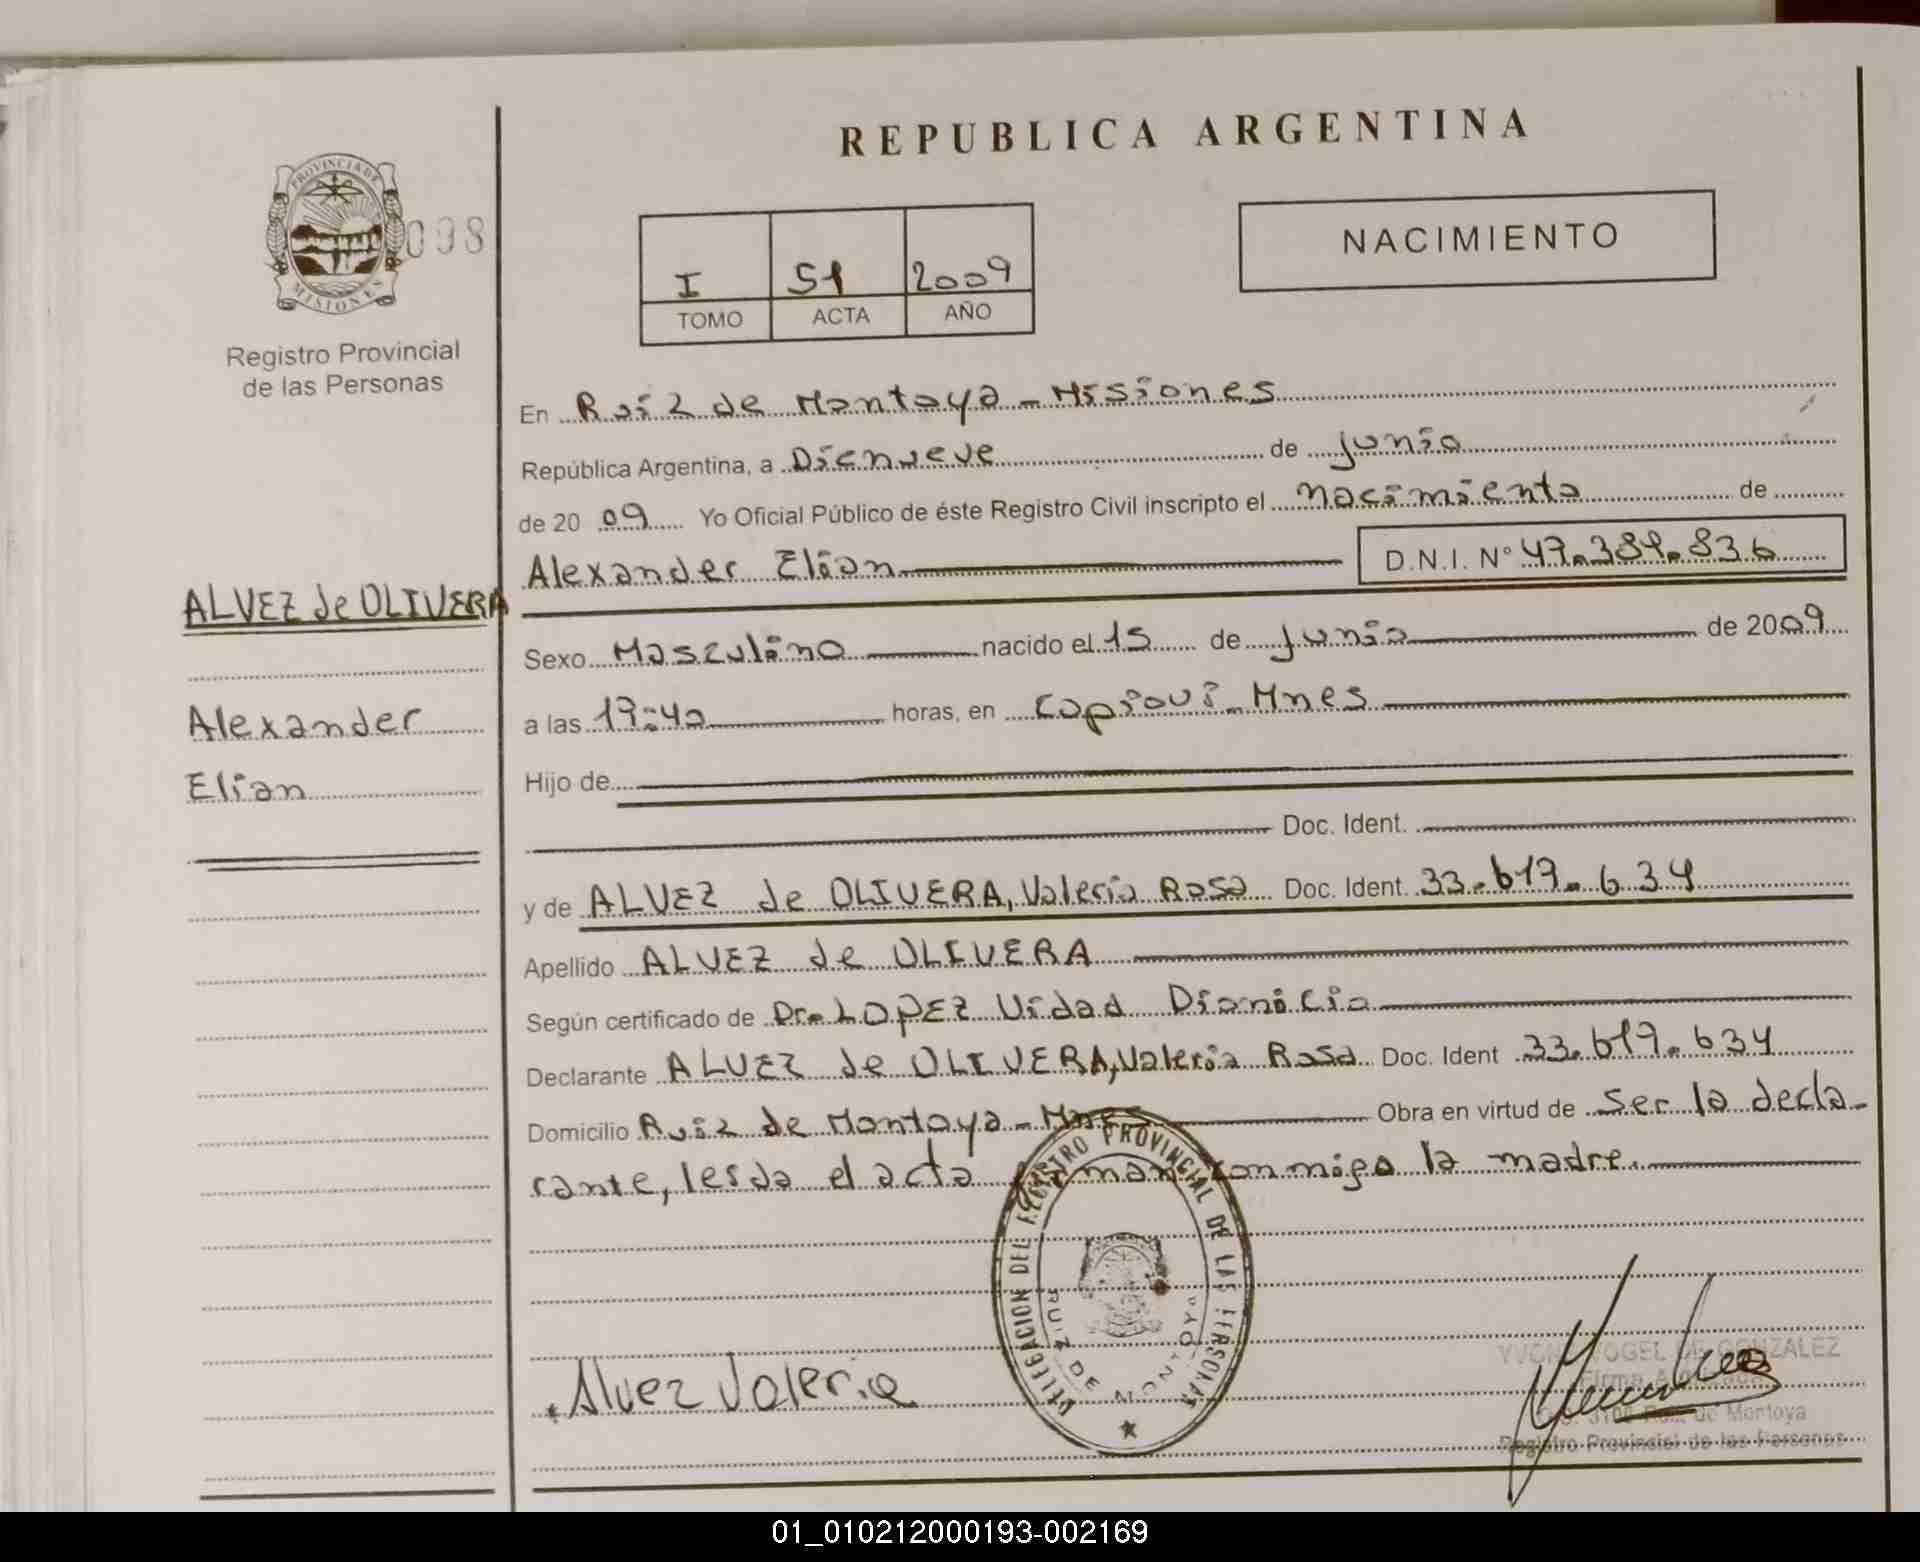 REPUBLICA ARGENTINA
PROVINCIA DE MISIONES
098
Registro Provincial
de las Personas
I 51 2009
TOMO ACTA AÑO
NACIMIENTO
En Ruiz de Montoya - Misiones
República Argentina, a Dienueve de junio
de 2009 Yo Oficial Público de éste Registro Civil inscripto el nacimiento de
Alexander Elian D.N.I. N°
ALVEZ de OLIVERA
Alexander
Elian
Sexo Masculino nacido el 15 de junio de 2009
a las horas, en Capioví - Mnes
Hijo de
Doc. Ident.
y de ALVEZ de OLIVERA, Valeria Rosa Doc. Ident. 33.617.634
Apellido ALVEZ de OLIVERA
Según certificado de Dr. LOPEZ Vidad
Declarante ALVEZ de OLIVERA, Valeria Rosa Doc. Ident 33.617.634
Domicilio Ruiz de Montoya - Mnes Obra en virtud de ser la decla-
rante, leida el acta firman conmigo la madre.
DELEGACION DEL REGISTRO PROVINCIAL DE LAS PERSONAS
RUIZ DE MONTOYA
Alvez Valeria
GONZALEZ
Ruiz de Montoya
Registro Provincial de las Personas
01_010212000193-002169